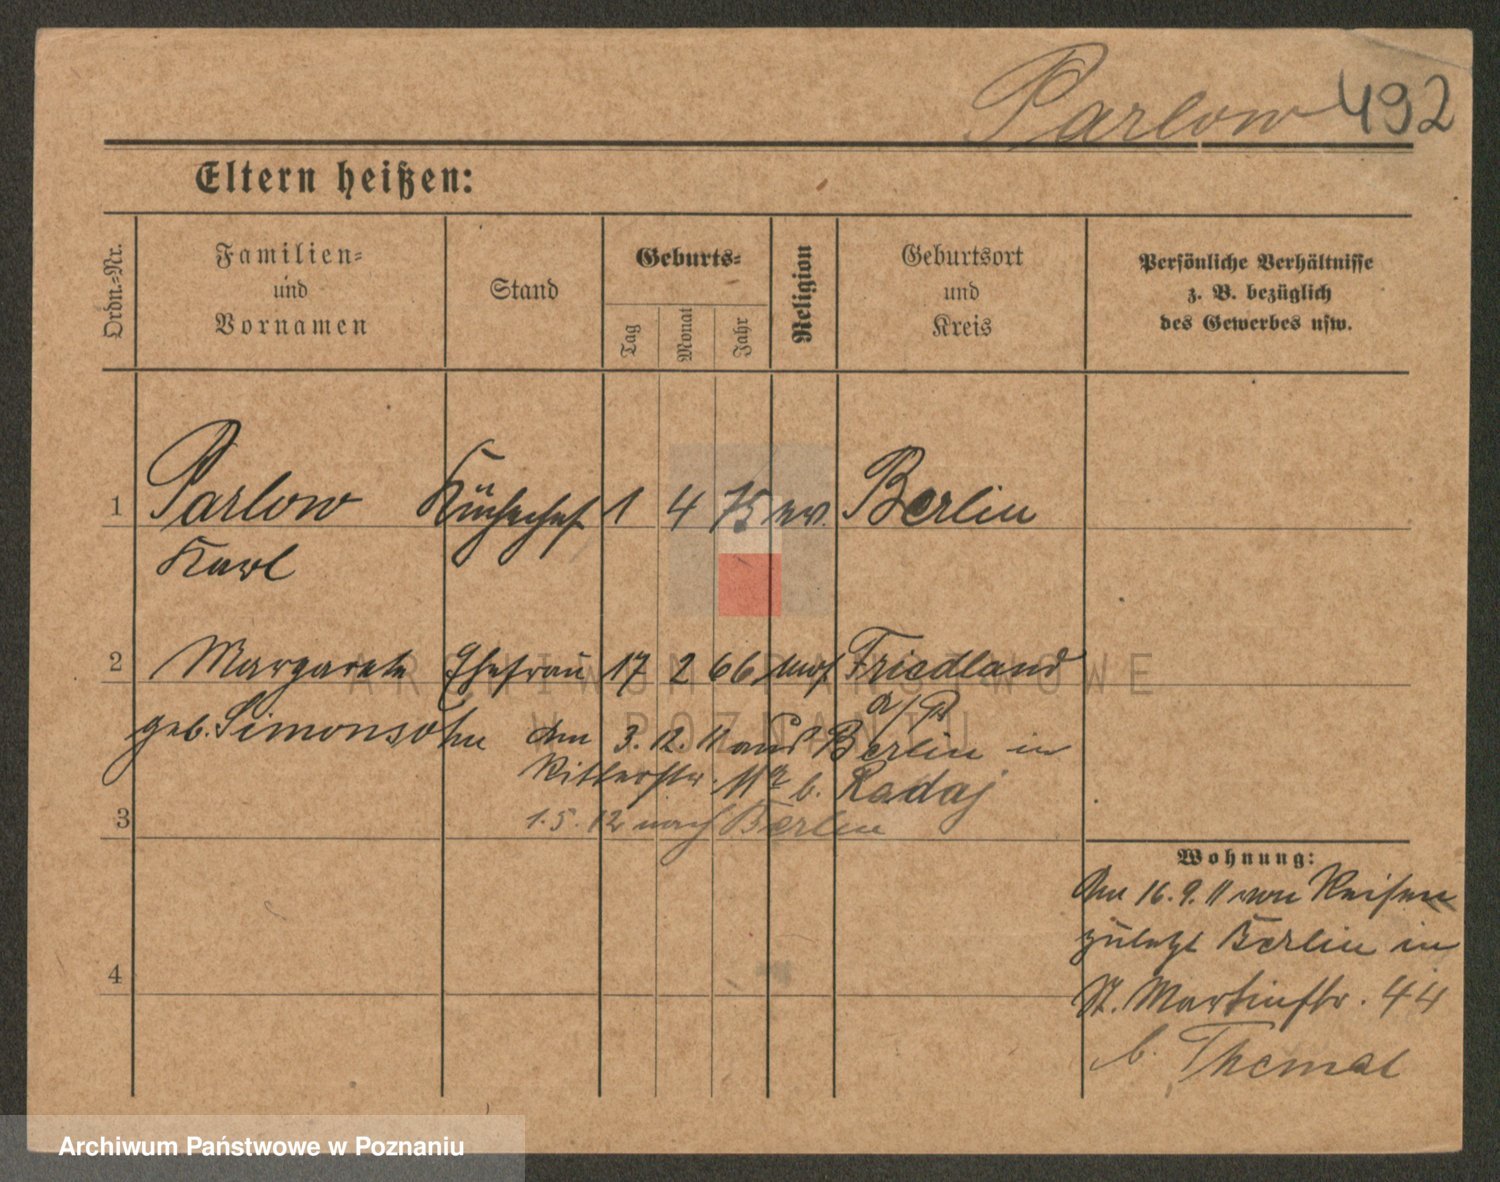 Parlow 492
Eltern heißen:
Ordn.-Nr.
Familien-
und
Vornamen
Stand
Geburts-
Tag
Monat
Jahr
Religion
Geburtsort
und
Kreis
Persönliche Verhältnisse
z. B. bezüglich
des Gewerbes usw.
1 Parlow Küchenchef 1 4 75 ev. Berlin
Karl
2 Margarete Ehefrau 17 2 66 mos Friedland
geb. Simonsohn
den 3. 12. 11 aus Berlin in
Ritterstr. 11a b. Radaj
3 1.5.12 nach Berlin
Wohnung:
Am 16. 9. 11 von Reisen
zuletzt Berlin in
St. Martinstr. 44
b. Themal
4
ARCHIWUM PAŃSTWOWE
W POZNANIU
Archiwum Państwowe w Poznaniu